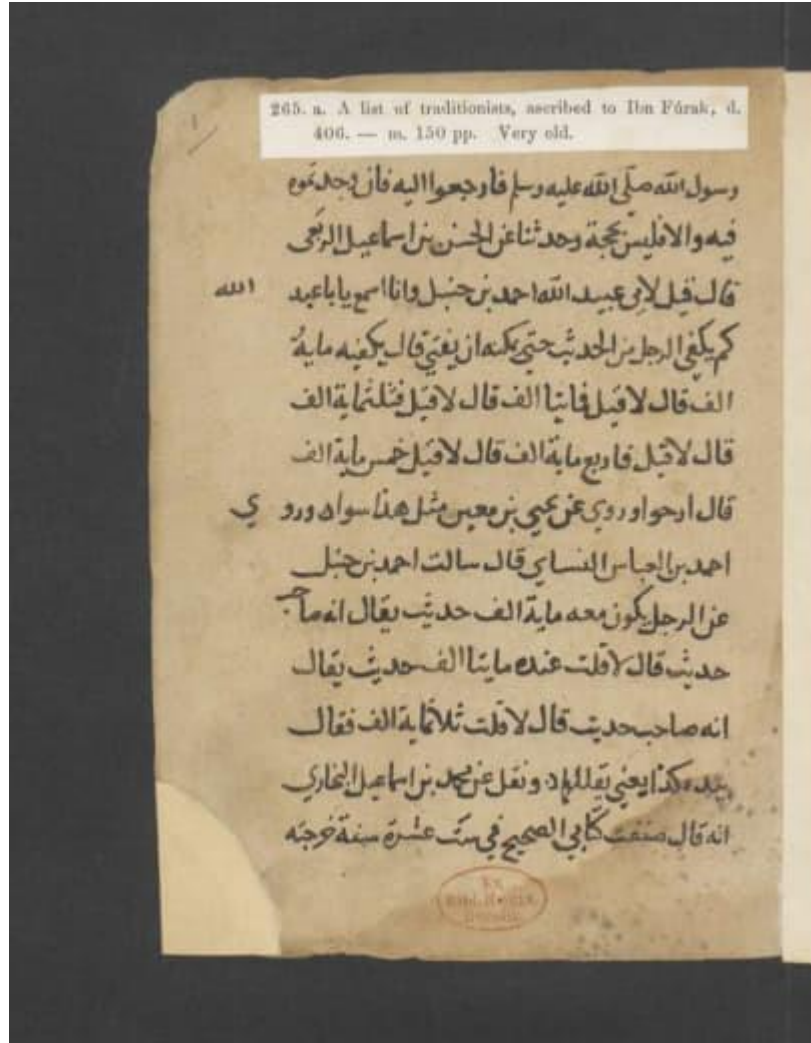 265. a. A list of traditionists, ascribed to Ibn Fúrak, d.
406. — m. 150 pp. Very old.
رسول الله صلى الله عليه وسلم فارجعوا اليه فان وجدتموه
فيه والا فليس بحجة وحدثنا عن الحسن بن اسماعيل الربعي
قال قيل لابي عبد الله احمد بن حنبل وانا اسمع يا با عبد الله
كم يكفي الرجل من الحديث حتي يمكنه ان يفتي قال يكفيه ماية
الف قال لا قيل فمايتا الف قال لا قيل فثلثماية الف
قال لا قيل فاربع ماية الف قال لا قيل خمس ماية الف
قال ارجوا وروي عن يحيي بن معين مثل هذا سواه وروي
احمد بن العباس النساي قال سالت احمد بن حنبل
عن الرجل يكون معه ماية الف حديث يقال انه صاحب
حديث قال لا قلت عنده مايتا الف حديث يقال
انه صاحب حديث قال لا قلت ثلاثماية الف فقال
بيده كذا يعني يقللها ونقل عن محمد بن اسماعيل البخاري
انه قال صنفت كتابي الصحيح في ست عشرة سنة خرجته